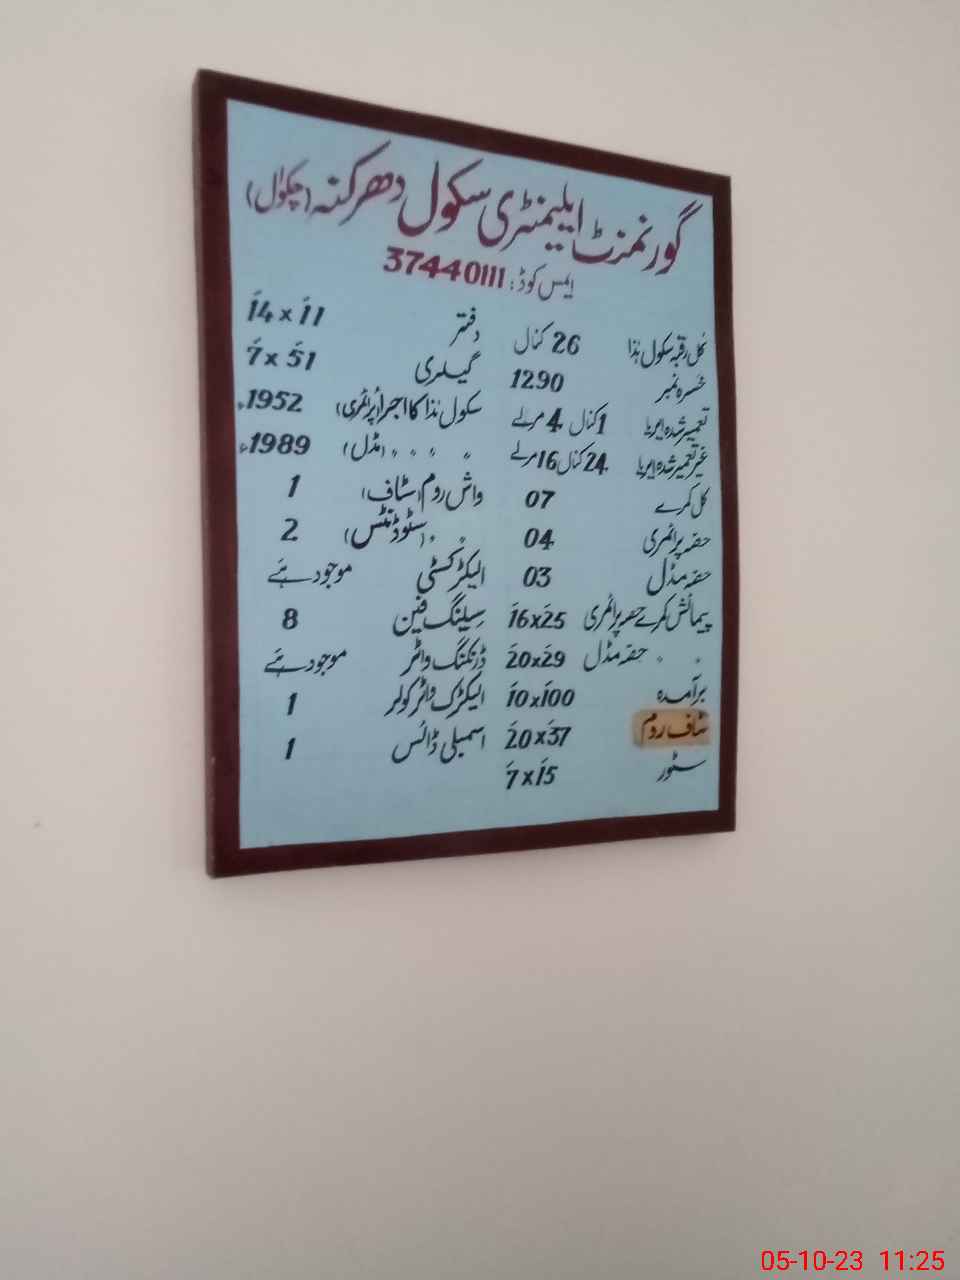 گورنمنٹ ایلیمنٹری سکول دھرکنہ (چکوال)
ایمس کوڈ: 37440111
کل رقبہ سکول ہٰذا 26 کنال
خسرہ نمبر 1290
تعمیر شدہ ایریا 1 کنال 4 مرلے
غیر تعمیر شدہ ایریا 24 کنال 16 مرلے
کل کمرے 07
حصہ پرائمری 04
حصہ مڈل 03
پیمائش کمرے حصہ پرائمری 16x25
" " حصہ مڈل 20x29
برآمدہ 10x100
سٹاف روم 20x37
سٹور 7x15
دفتر 14x11
گیلری 7x51
سکول ہٰذا کا اجراء (پرائمری) 1952ء
" " " " (مڈل) 1989ء
واش روم (سٹاف) 1
" " (سٹوڈنٹس) 2
الیکٹرکسٹی موجود ہے
سیلنگ فین 8
ڈرنکنگ واٹر موجود ہے
الیکٹرک واٹر کولر 1
اسمبلی ڈائس 1
05-10-23 11:25